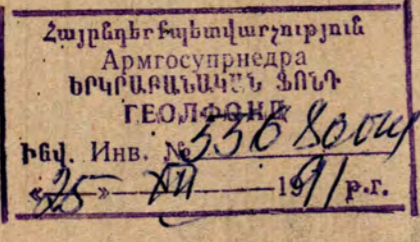 Հայընդերքպետվարչություն
Армгосупрнедра
ԵՐԿՐԱԲԱՆԱԿԱՆ ՖՈՆԴ
ГЕОЛФОНД
Ինվ. Инв. №
«25» XII 1991 թ.г.